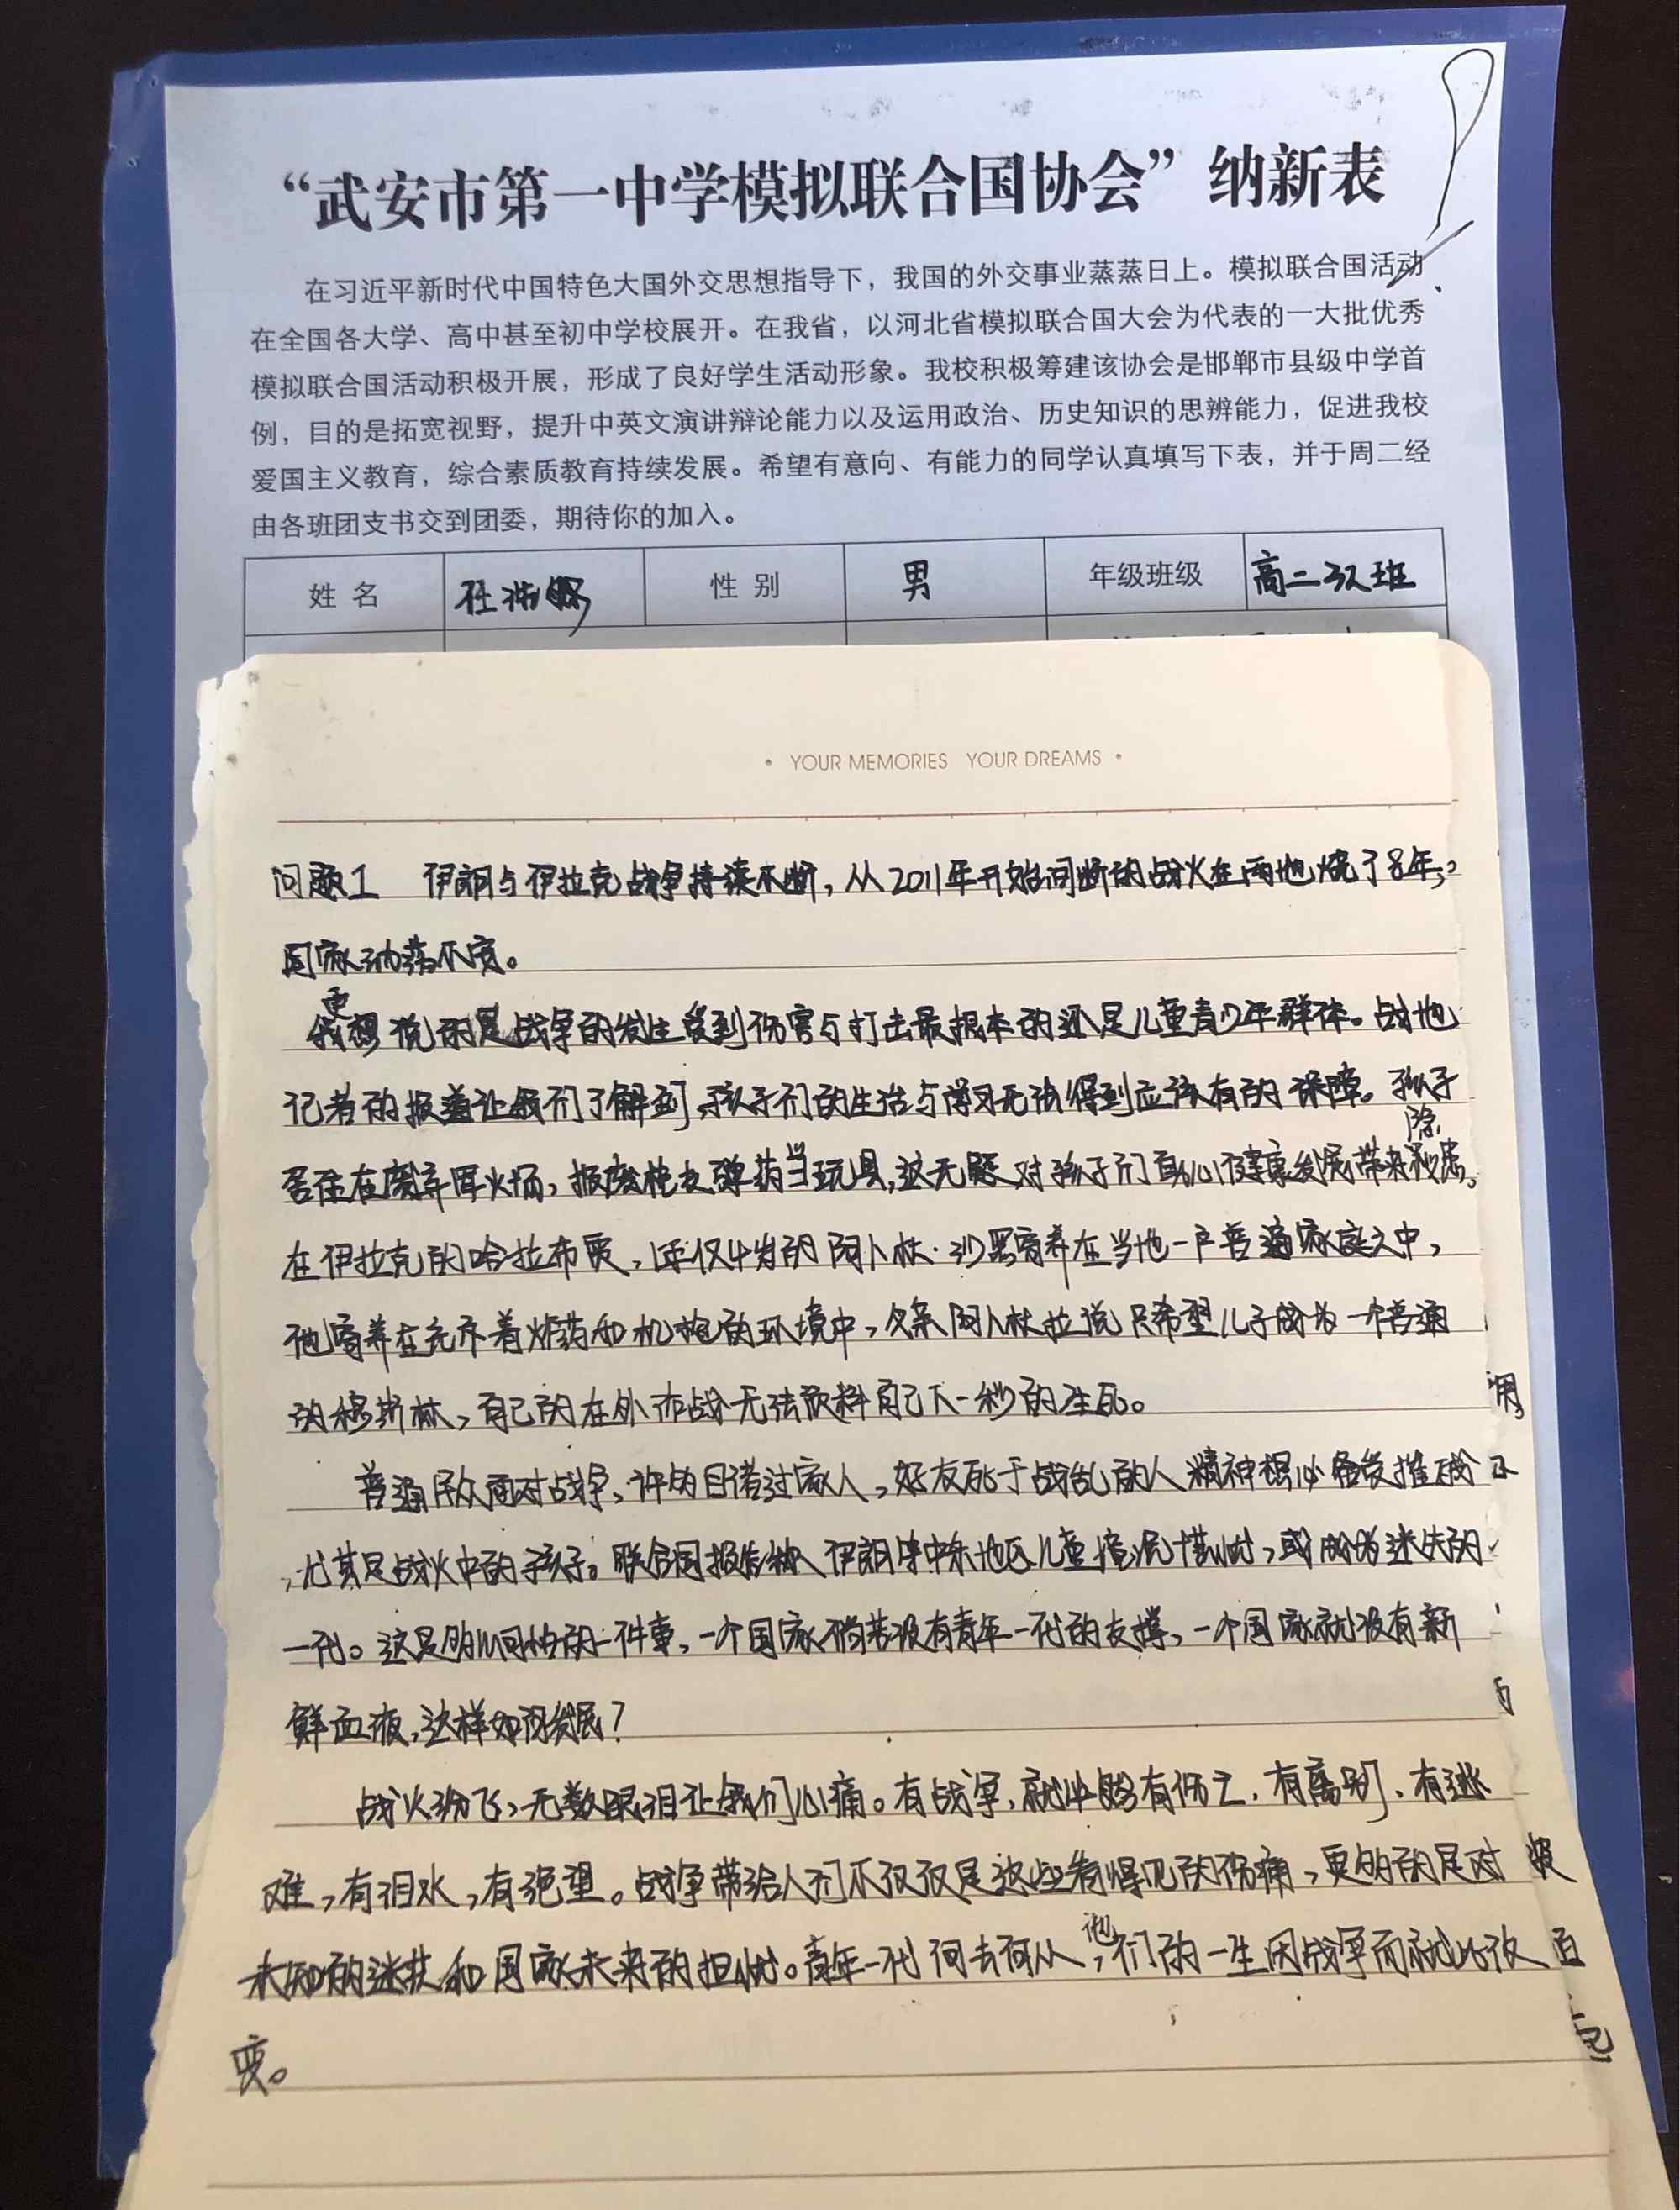 “武安市第一中学模拟联合国协会”纳新表
在习近平新时代中国特色大国外交思想指导下，我国的外交事业蒸蒸日上。模拟联合国活动
在全国各大学、高中甚至初中学校展开。在我省，以河北省模拟联合国大会为代表的一大批优秀
模拟联合国活动积极开展，形成了良好学生活动形象。我校积极筹建该协会是邯郸市县级中学首
例，目的是拓宽视野，提升中英文演讲辩论能力以及运用政治、历史知识的思辨能力，促进我校
爱国主义教育，综合素质教育持续发展。希望有意向、有能力的同学认真填写下表，并于周二经
由各班团支书交到团委，期待你的加入。
姓 名 性 别 男 年级班级 高二 班
• YOUR MEMORIES YOUR DREAMS •
问题1 伊朗与伊拉克战争持续不断，从2011年开始间断的战火在两地烧了8年，
国家动荡不安。
更想说的是战争的发生受到伤害与打击最根本的还是儿童青少年群体。战地
记者的报道让我们了解到，孩子们的生活与学习无法得到应该有的保障。孩子
居住在废弃军火场，报废枪支弹药当玩具，这无疑对孩子们身心健康发展带来隐患。
在伊拉克的哈拉布贾，年仅4岁的阿卜杜·沙黑寄养在当地一户普通家庭之中，
他寄养在充斥着炸药和机枪的环境中，父亲阿卜杜拉说只希望儿子成为一个普通
的穆斯林，自己的在外作战无法预料自己下一秒的生死。
普通民众面对战争，许多目睹过家人，好友死于战乱的人精神想必备受摧残
，尤其是战火中的孩子。联合国报告称 伊朗等中东地区儿童境况堪忧，或成为迷失的
一代。这是多么可怕的一件事，一个国家倘若没有青年一代的支撑，一个国家就没有新
鲜血液，这样如何发展？
战火纷飞，无数眼泪让我们心痛。有战争，就伴随有伤亡，有离别，有逃
难，有泪水，有绝望。战争带给人们不仅仅是这些看得见的伤痛，更多的是对
未知的迷茫和国家未来的担忧。青年一代何去何从，他们的一生因战争而就此改
变。